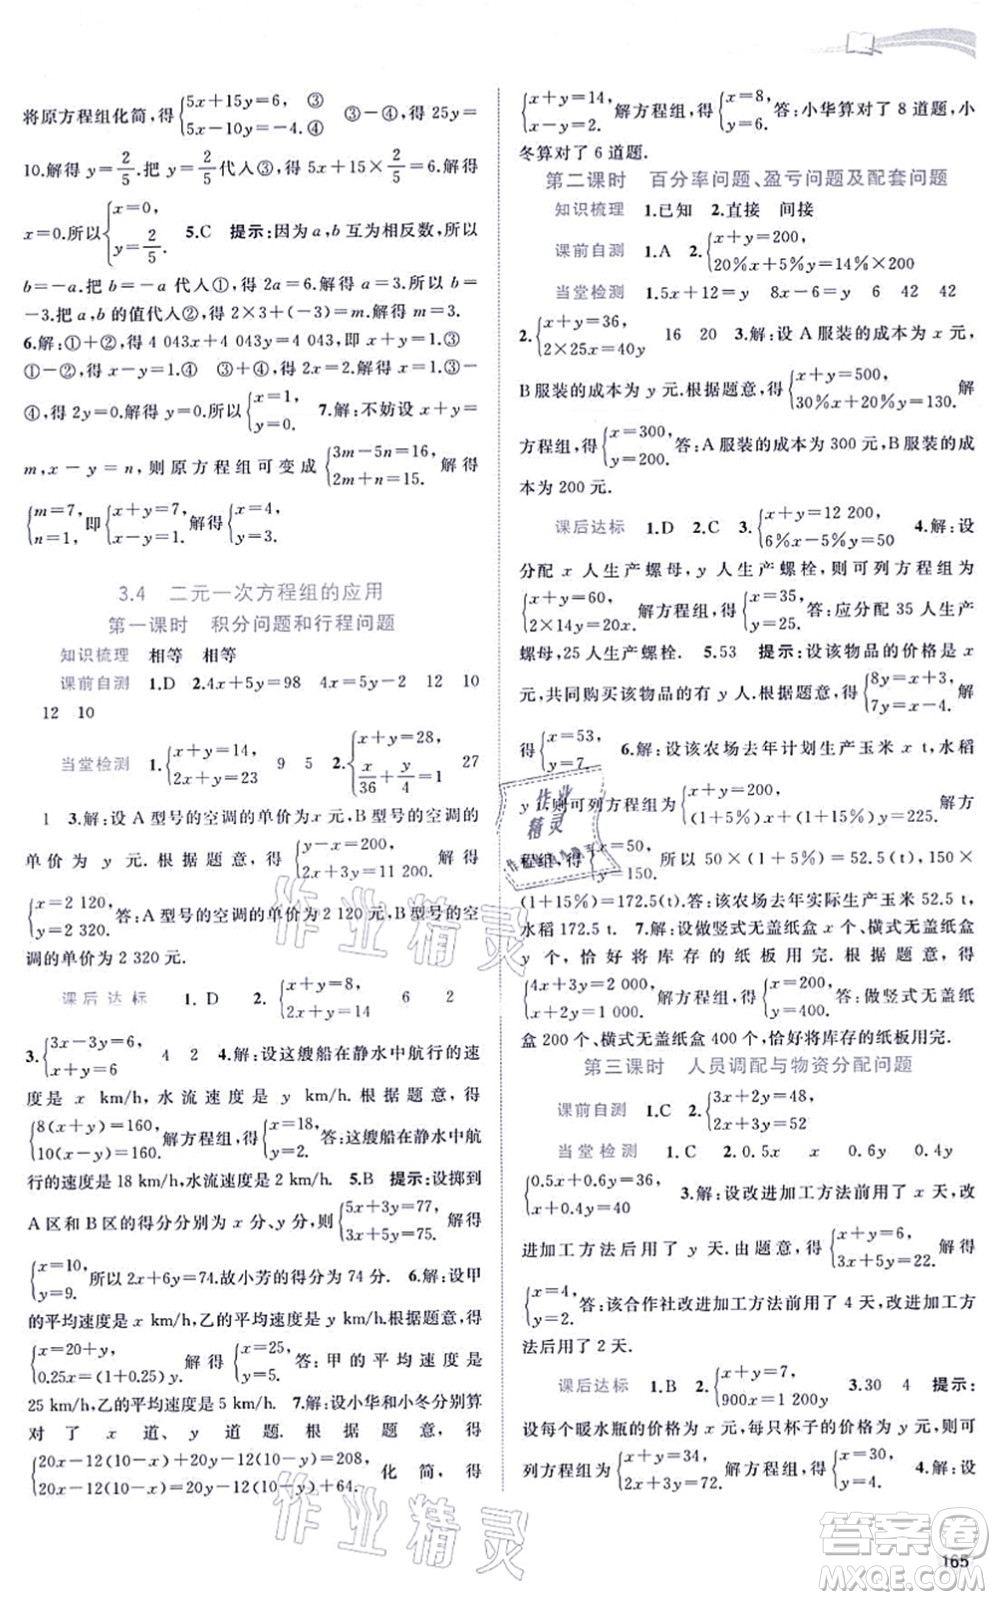 将原方程组化简，得{5x+15y=6, ③ 5x-10y=-4.④ ③-④，得 25y=
10.解得 y=2/5.把 y=2/5 代人③，得 5x+15×2/5=6.解得
x=0.所以{x=0, y=2/5. 5.C 提示：因为 a，b 互为相反数，所以
b=-a.把 b=-a 代人①，得 2a=6.解得 a=3.所以 b=
-3.把 a，b 的值代人②，得 2×3+(-3)=m.所以 m=3.
6.解：①+②，得 4 043x+4 043y=4 043，即 x+y=1.③
①-②，得 x-y=1.④ ③+④，得 2x=2.解得 x=1.③-
④，得 2y=0.解得 y=0.所以{x=1, y=0. 7.解：不妨设 x+y=
m，x-y=n，则原方程组可变成{3m-5n=16, 2m+n=15. 解得
{m=7, n=1, 即{x+y=7, x-y=1. 解得{x=4, y=3.
3.4 二元一次方程组的应用
第一课时 积分问题和行程问题
知识梳理 相等 相等
课前自测 1.D 2.4x+5y=98 4x=5y-2 12 10
12 10
当堂检测 1.{x+y=14, 2x+y=23 9 5 2.{x+y=28, x/36+y/4=1 27
1 3.解：设 A 型号的空调的单价为 x 元，B 型号的空调的
单价为 y 元.根据题意，得{y-x=200, 2x+3y=11 200. 解得
{x=2 120, y=2 320. 答：A 型号的空调的单价为 2 120 元，B 型号的空
调的单价为 2 320 元.
课后达标 1.D 2.{x+y=8, 2x+y=14 6 2
3.{3x-3y=6, x+y=6 4 2 4.解：设这艘船在静水中航行的速
度是 x km/h，水流速度是 y km/h.根据题意，得
{8(x+y)=160, 10(x-y)=160. 解方程组，得{x=18, y=2. 答：这艘船在静水中航
行的速度是 18 km/h，水流速度是 2 km/h. 5.B 提示：设掷到
A 区和 B 区的得分分别为 x 分、y 分，则{5x+3y=77, 3x+5y=75. 解得
{x=10, y=9. 所以 2x+6y=74.故小芳的得分为 74 分. 6.解：设甲
的平均速度是 x km/h，乙的平均速度是 y km/h.根据题意，得
{x=20+y, 0.25x=(1+0.25)y. 解得{x=25, y=5. 答：甲的平均速度是
25 km/h，乙的平均速度是 5 km/h. 7.解：设小华和小冬分别算
对了 x 道、y 道题.根据题意，得
{20x-12(10-x)+20y-12(10-y)=208, 20x-12(10-x)-[20y-12(10-y)]=64. 化简，得
{x+y=14, x-y=2. 解方程组，得{x=8, y=6. 答：小华算对了 8 道题，小
冬算对了 6 道题.
第二课时 百分率问题、盈亏问题及配套问题
知识梳理 1.已知 2.直接 间接
课前自测 1.A 2.{x+y=200, 20%x+5%y=14%×200
当堂检测 1.5x+12=y 8x-6=y 6 42 42
2.{x+y=36, 2×25x=40y 16 20 3.解：设 A 服装的成本为 x 元，
B 服装的成本为 y 元.根据题意，得{x+y=500, 30%x+20%y=130. 解
方程组，得{x=300, y=200. 答：A 服装的成本为 300 元，B 服装的成
本为 200 元.
课后达标 1.D 2.C 3.{x+y=12 200, 6%x-5%y=50 4.解：设
分配 x 人生产螺母，y 人生产螺栓，则可列方程组为
{x+y=60, 2×14x=20y. 解方程组，得{x=25, y=35. 答：应分配 35 人生产
螺母，25 人生产螺栓. 5.53 提示：设该物品的价格是 x
元，共同购买该物品的有 y 人.根据题意，得{8y=x+3, 7y=x-4. 解
得{x=53, y=7. 6.解：设该农场去年计划生产玉米 x t，水稻
y t，则可列方程组为{x+y=200, (1+5%)x+(1+15%)y=225. 解方
程组，得{x=50, y=150. 所以 50×(1+5%)=52.5(t)，150×
(1+15%)=172.5(t).答：该农场去年实际生产玉米 52.5 t，
水稻 172.5 t. 7.解：设做竖式无盖纸盒 x 个、横式无盖纸盒
y 个，恰好将库存的纸板用完.根据题意，得
{4x+3y=2 000, x+2y=1 000. 解方程组，得{x=200, y=400. 答：做竖式无盖纸
盒 200 个、横式无盖纸盒 400 个，恰好将库存的纸板用完.
第三课时 人员调配与物资分配问题
课前自测 1.C 2.{3x+2y=48, 5x+3y=52
当堂检测 1.C 2.0.5x x 0.6y 0.4y
{0.5x+0.6y=36, x+0.4y=40 3.解：设改进加工方法前用了 x 天，改
进加工方法后用了 y 天.根据题意，得{x+y=6, 3x+5y=22. 解得
{x=4, y=2. 答：该合作社改进加工方法前用了 4 天，改进加工方
法后用了 2 天.
课后达标 1.B 2.{x+y=75, 900x=1 200y 3.30 4 提示：
设每个暖水瓶的价格为 x 元，每只杯子的价格为 y 元，则可
列方程组为{x+y=34, 2x+3y=72. 解方程组，得{x=30, y=4. 4.解：设
165
作业精灵
作业精灵
作业精灵
答案圈
MXQE.COM